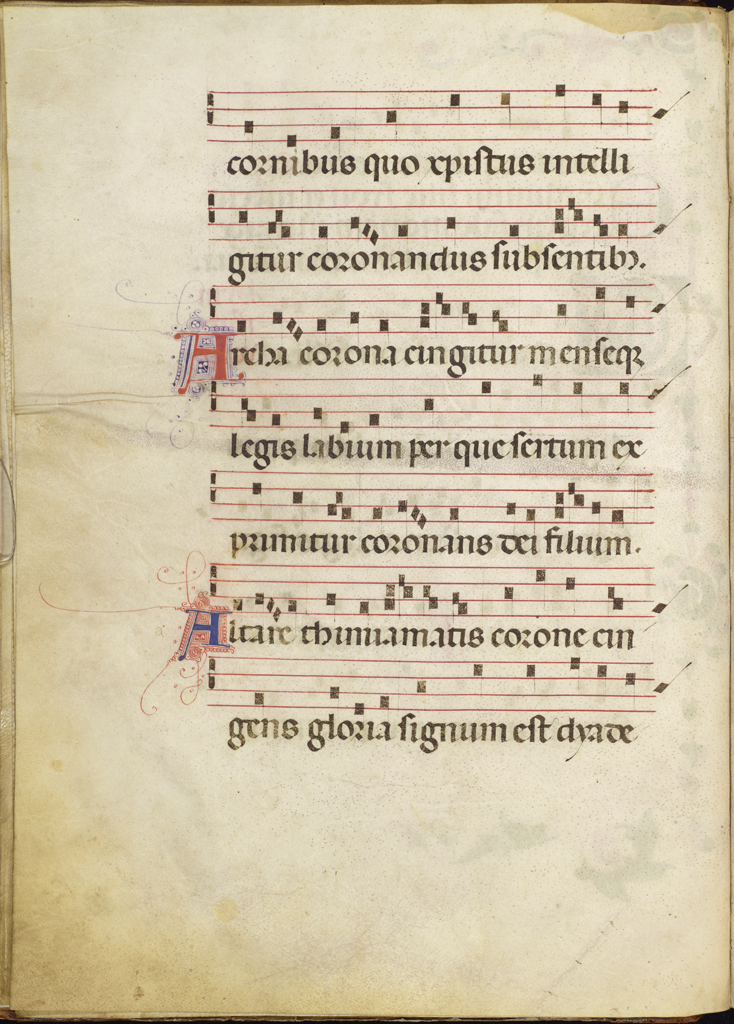 cornibus quo xpistus intelli
gitur coronandus subsentibꝫ.
Archa corona cingitur menseqꝫ
legis labium per que sertum ex
primitur coronans dei filium.
Altare thimiamatis corone cin
gens gloria signum est dyade